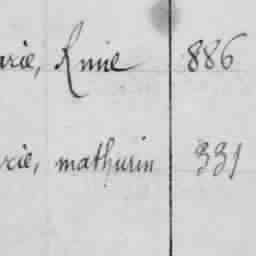 arie, René 886
rie, mathurin 331